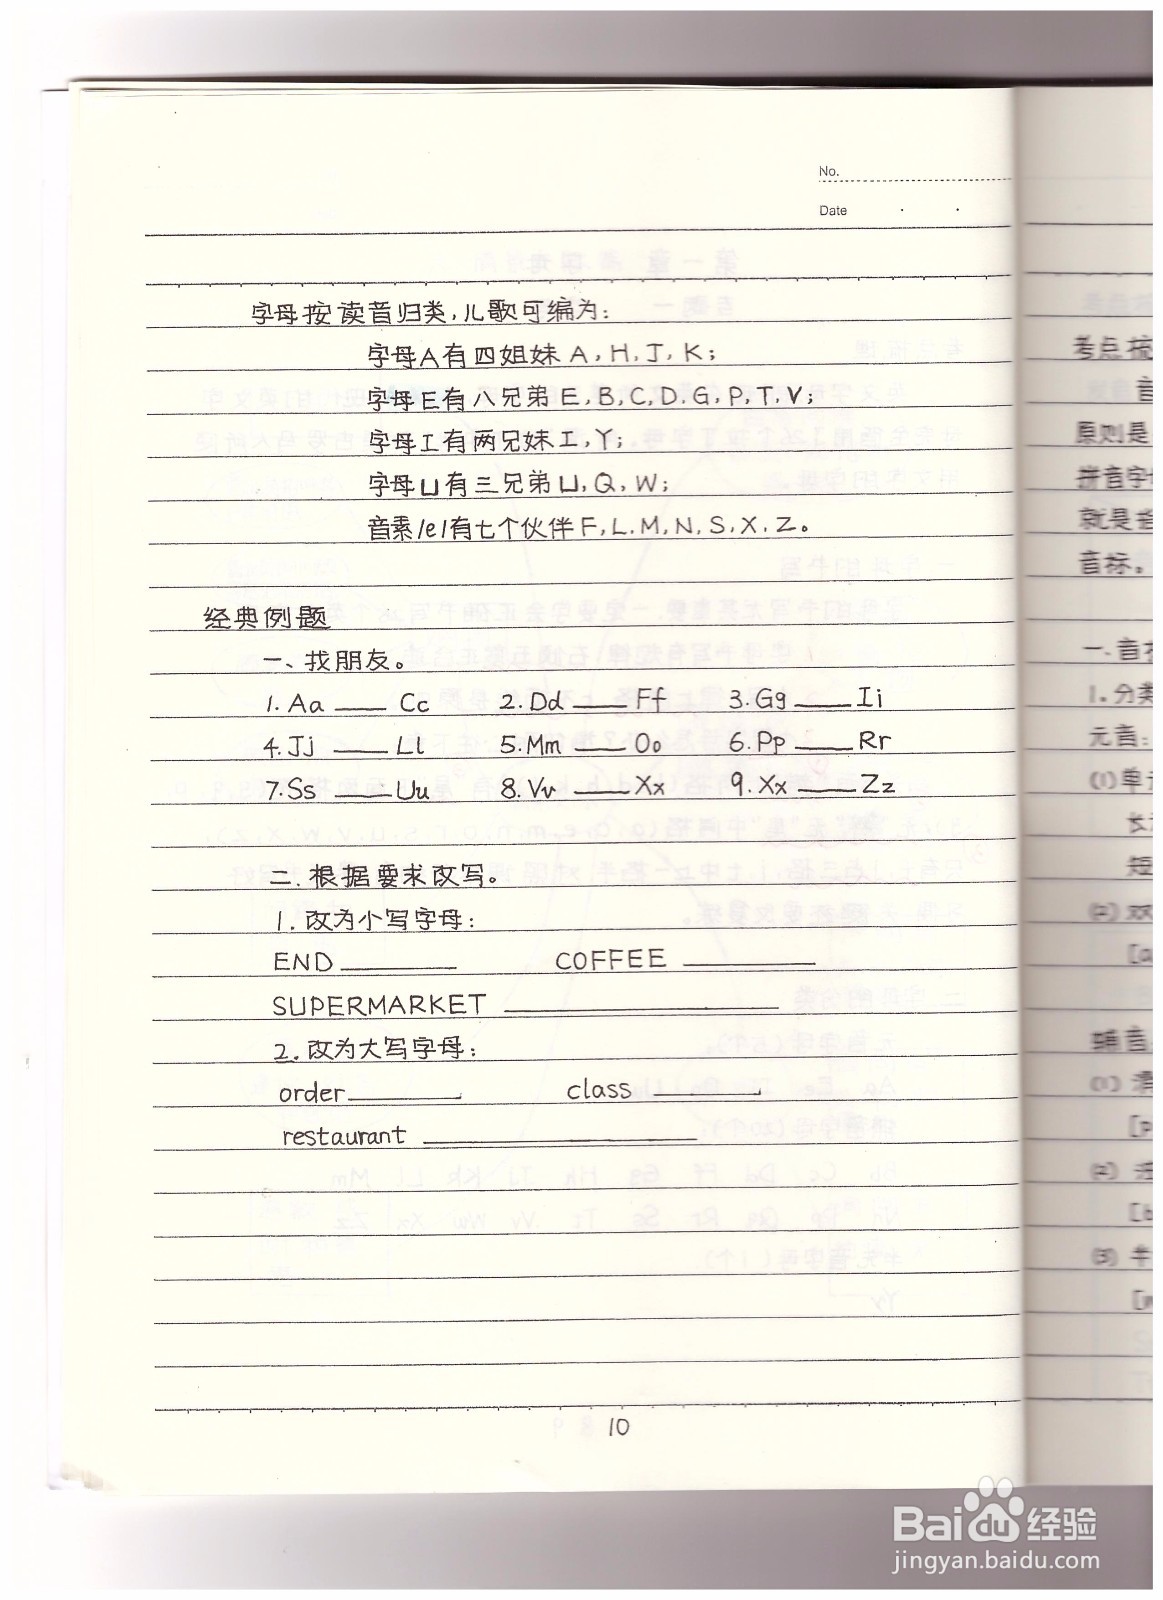 No.
Date
字母按读音归类,儿歌可编为:
字母A有四姐妹A,H,J,K;
字母E有八兄弟E,B,C,D,G,P,T,V;
字母I有两兄妹I,Y;
字母U有三兄弟U,Q,W;
音素/e/有七个伙伴F,L,M,N,S,X,Z。
经典例题
一、找朋友。
1. Aa ____ Cc 2. Dd ____ Ff 3. Gg ____ Ii
4. Jj ____ Ll 5. Mm ____ Oo 6. Pp ____ Rr
7. Ss ____ Uu 8. Vv ____ Xx 9. Xx ____ Zz
二.根据要求改写。
1.改为小写字母:
END ________ COFFEE ________
SUPERMARKET ________
2.改为大写字母:
order ________ class ________
restaurant ________
10
考点梳
音
原则是
拼音字
就是
音标。
一.音
1.分类
元音:
(1)单
长
短
(2)双
[a
辅音:
(1)清
[p
(2)
[b
(3)半
Baidu经验
jingyan.baidu.com